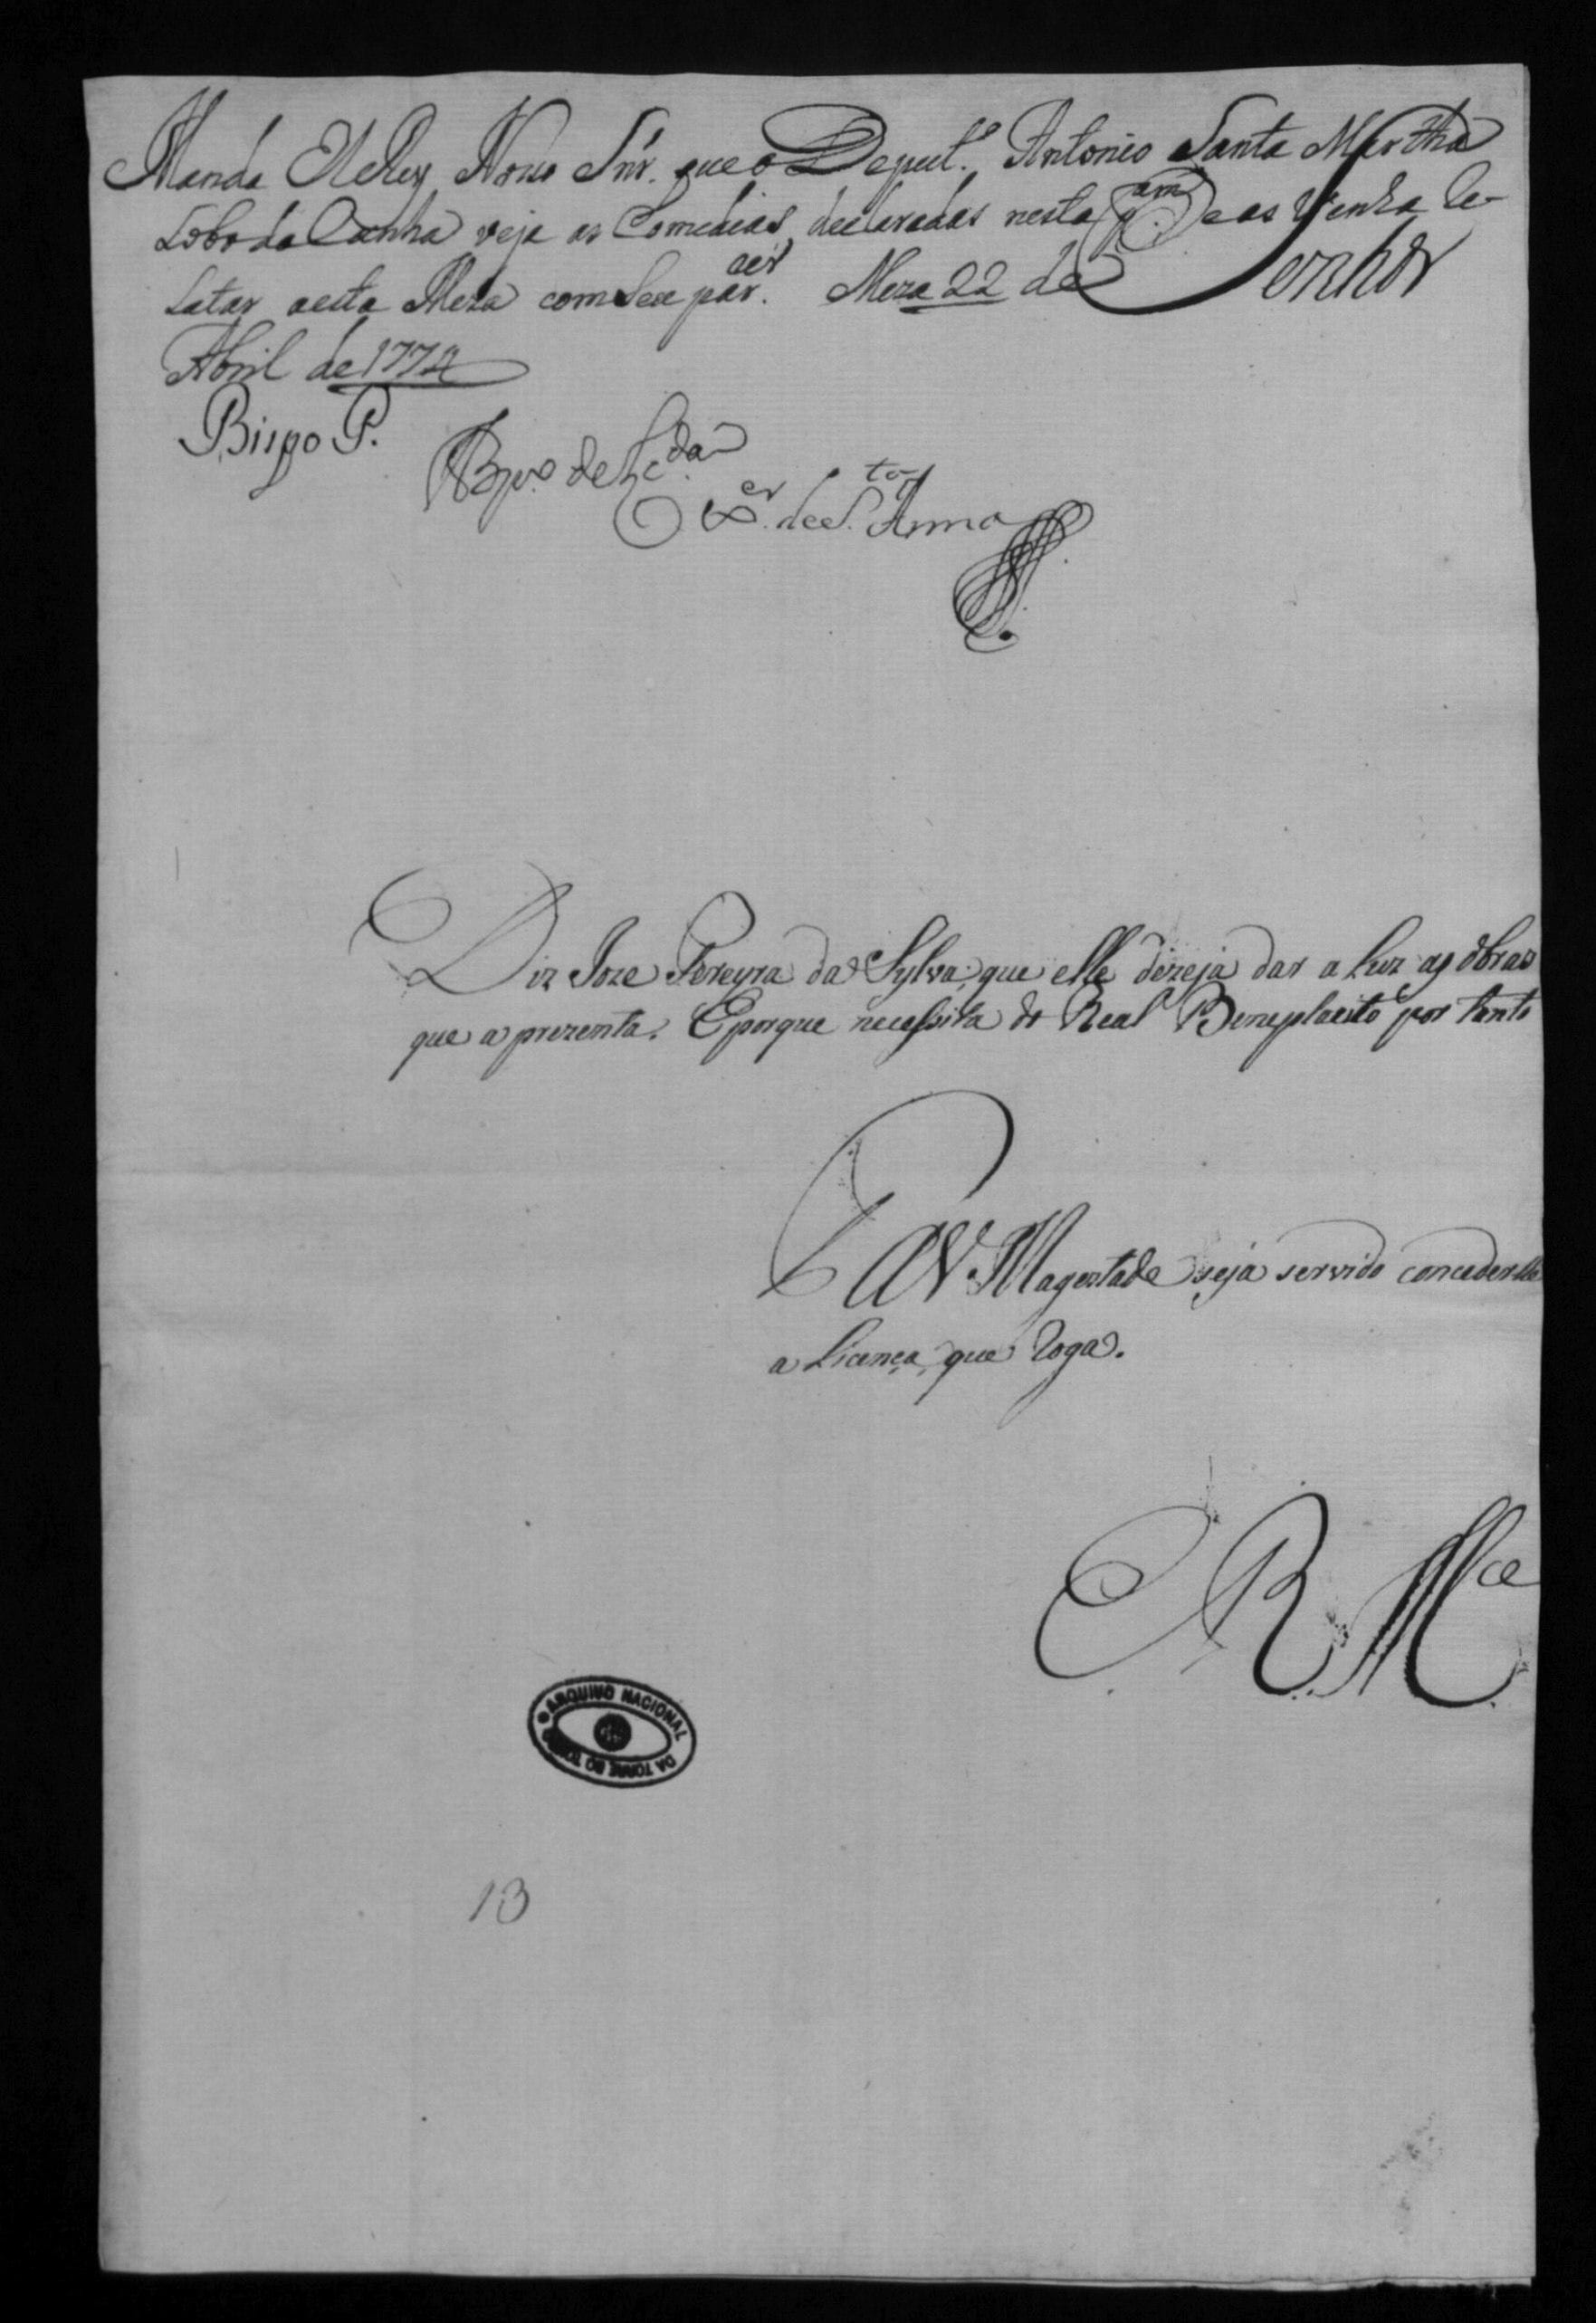 Manda ElRey Noso Snr. que o Deput.º Antonio Santa Martha
Lobo da Cunha veja as Comedias declaradas nesta e as venha re-
latar aesta Meza com seu par.cer Meza 22 de
Abril de 1774
Senhor
Bispo P.
Xer. de S.ta Anna
Diz Joze Pereyra da Sylva, que elle dezeja dar a Luz as obras
que aprezenta. E porque necessita do Real Beneplacito por tanto
P A V. Magestade seja servido concederlhe
a Licença, que roga.
E R Mce
ARQUIVO NACIONAL DA TORRE DO TOMBO
13